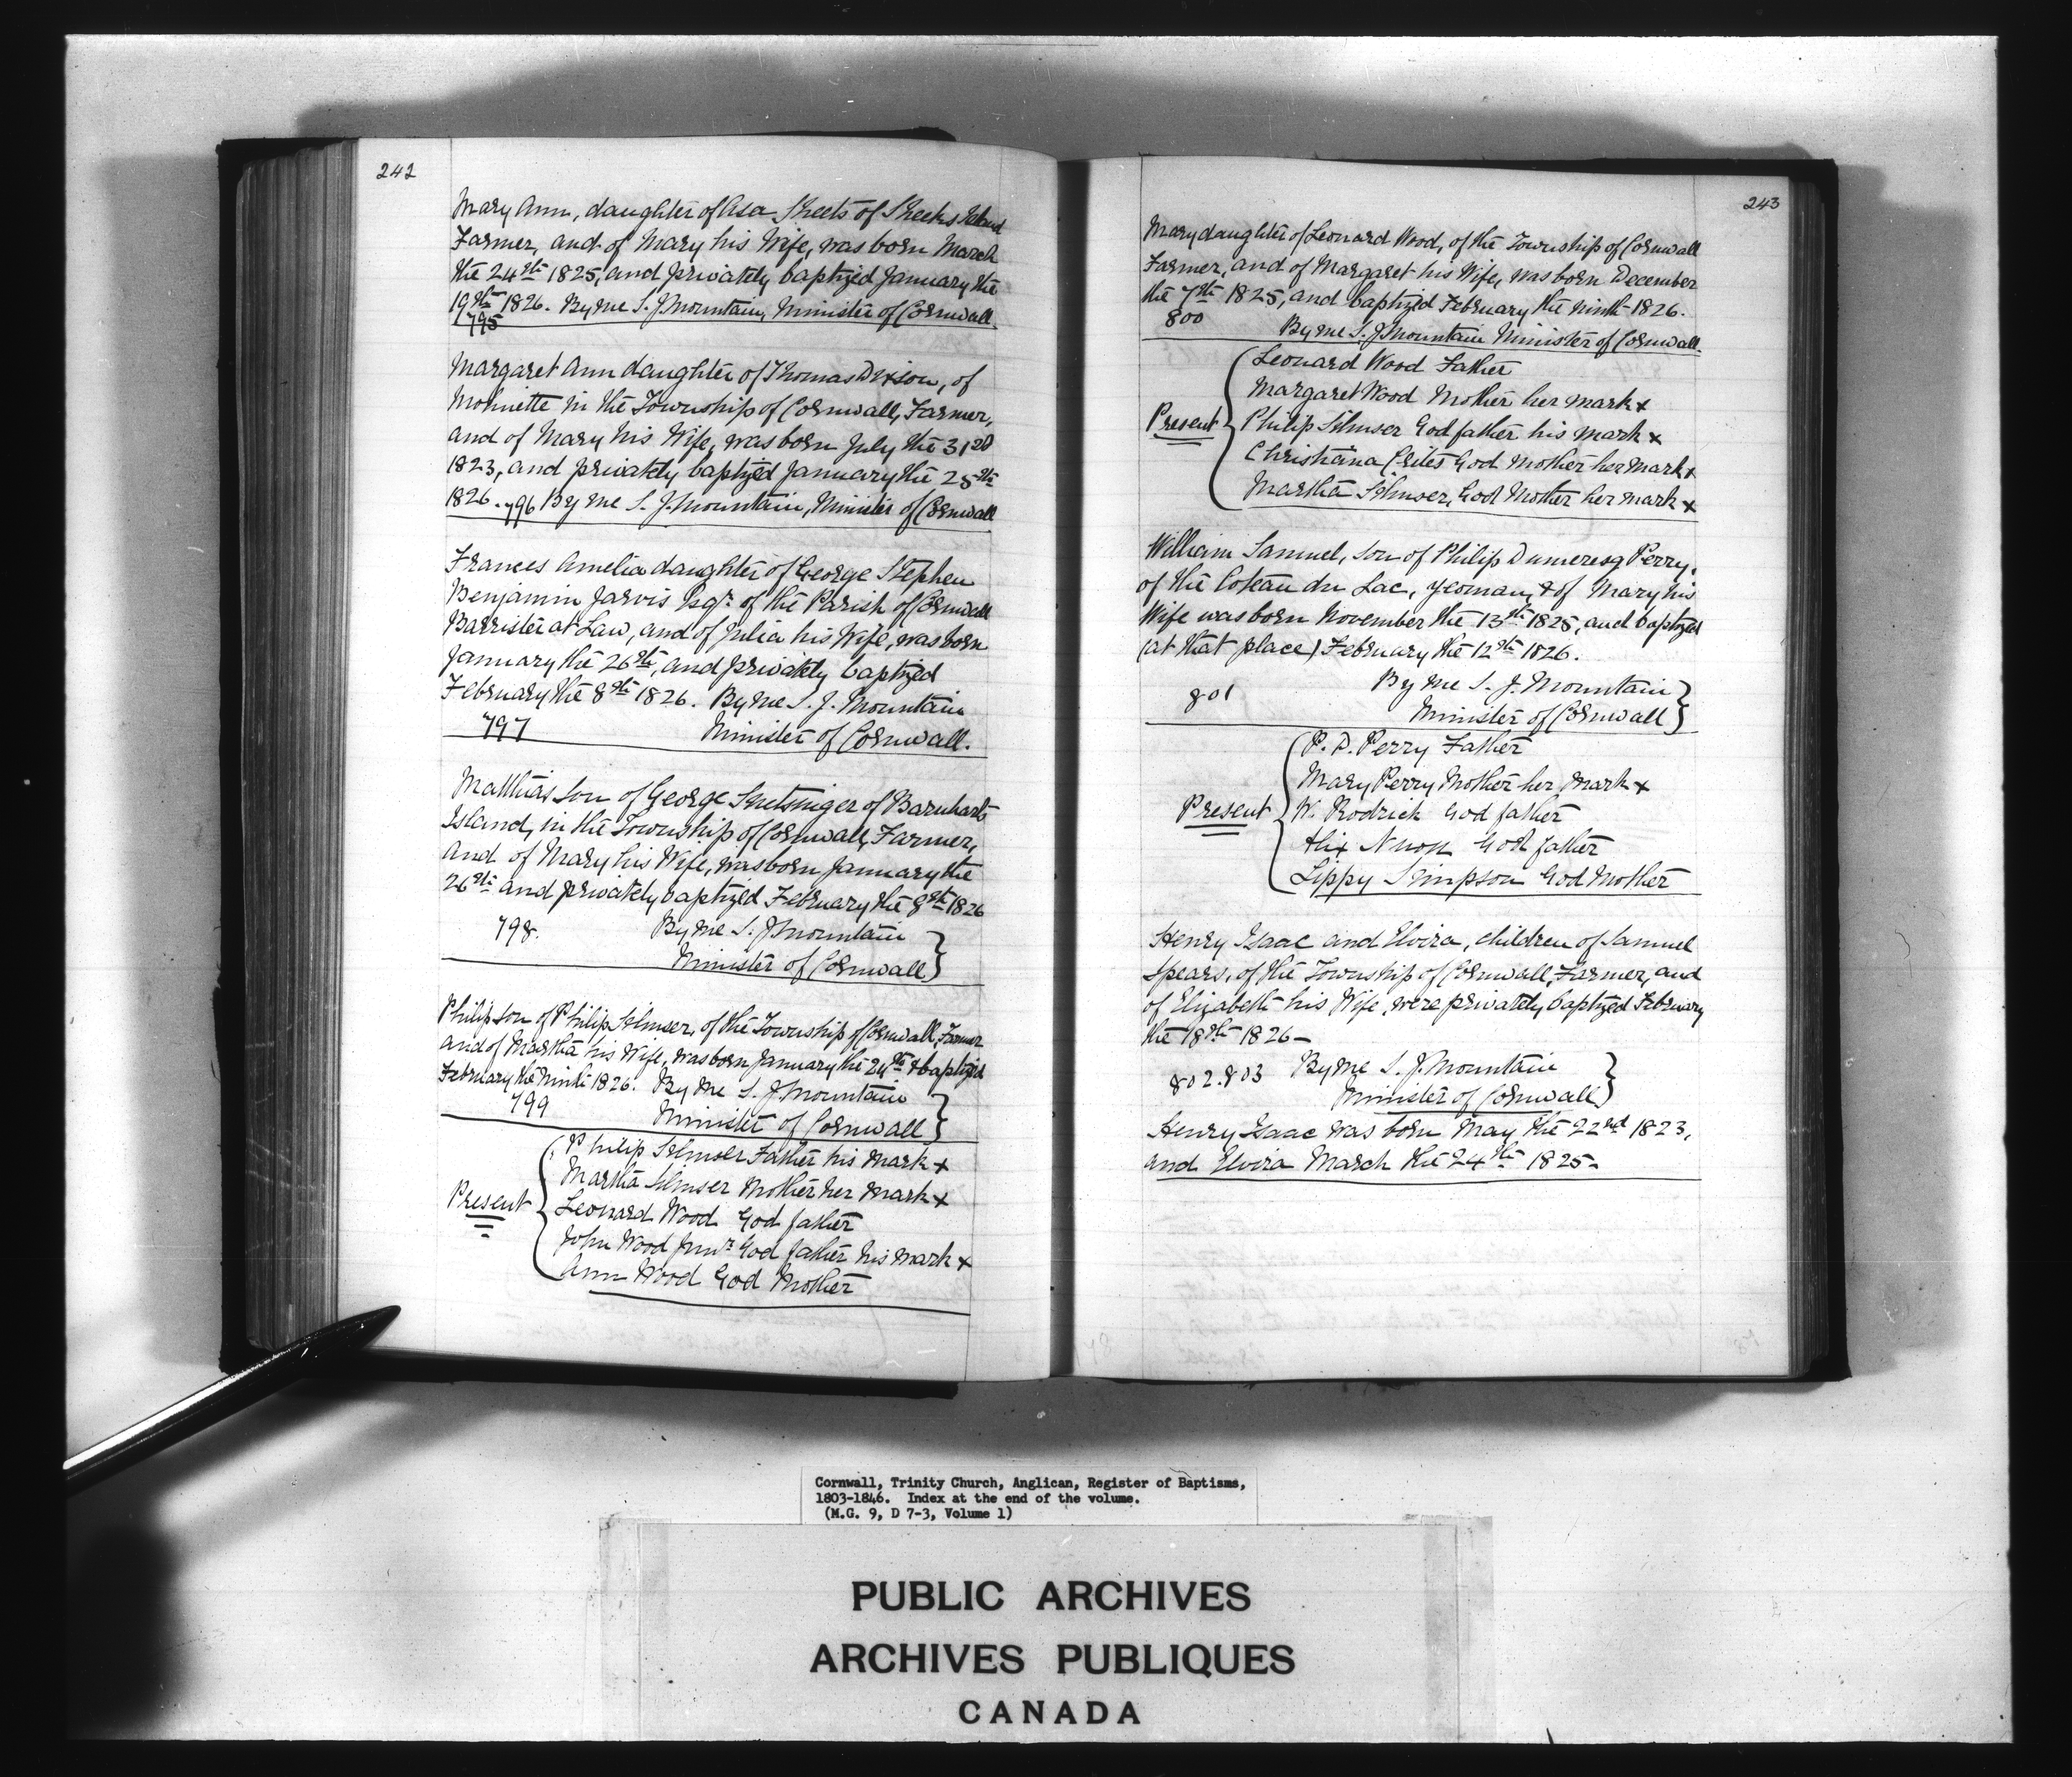 242
Mary Ann, daughter of Asa Sheets of Sheeks Island
Farmer, and of Mary his Wife, was born March
the 24th 1825, and privately baptized January the
19th 1826. By me S. J. Mountain, Minister of Cornwall.
795
Margaret Ann daughter of Thomas Dixson, of
in the Township of Cornwall, Farmer,
and of Mary his Wife, was born July the 31st
1823, and privately baptized January the 25th
1826. 796 By me S. J. Mountain, Minister of Cornwall
Frances Amelia daughter of George Stephen
Benjamin Jarvis Esqr. of the Parish of Cornwall
Barrister at Law, and of Julia his Wife, was born
January the 26th, and privately baptized
February the 8th 1826. By me S. J. Mountain
797 Minister of Cornwall.
Matthias son of George Snetsinger of Barnharts
Island, in the Township of Cornwall, Farmer,
and of Mary his Wife, was born January the
26th and privately baptized February the 8th 1826
798. By me S. J. Mountain
Minister of Cornwall
Philip son of Philip Silmser, of the Township of Cornwall, Farmer
and of Martha his Wife, was born January the 24th & baptized
February the Ninth 1826. By me S. J. Mountain
799 Minister of Cornwall
Present
Philip Silmser Father his mark x
Martha Silmser Mother her mark x
Leonard Wood God father
John Wood Junr. God father his mark x
Ann Wood God Mother
243
Mary daughter of Leonard Wood, of the Township of Cornwall
Farmer, and of Margaret his Wife, was born December
the 7th 1825, and baptized February the ninth 1826.
800 By me S. J. Mountain Minister of Cornwall.
Present
Leonard Wood Father
Margaret Wood Mother her mark x
Philip Silmser God father his mark x
Christiana Crites God Mother her mark x
Martha Silmser, God Mother her mark x
William Samuel, son of Philip Dumeresq Perry,
of the Coteau du Lac, yeoman, & of Mary his
Wife was born November the 13th 1825, and baptized
(at that place) February the 12th 1826.
801 By me S. J. Mountain
Minister of Cornwall
Present
P. D. Perry Father
Mary Perry Mother her mark x
W. Rodrick God father
God father
Lippy Simpson God Mother
Henry Isaac and Elvira, children of Samuel
Spears, of the Township of Cornwall, Farmer, and
of Elizabeth his Wife, were privately baptized February
the 18th 1826 -
802. 803 By me S. J. Mountain
Minister of Cornwall
Henry Isaac was born May the 22nd 1823,
and Elvira March the 24th 1825 -
Cornwall, Trinity Church, Anglican, Register of Baptisms,
1803-1846. Index at the end of the volume.
(M.G. 9, D 7-3, Volume 1)
PUBLIC ARCHIVES
ARCHIVES PUBLIQUES
CANADA